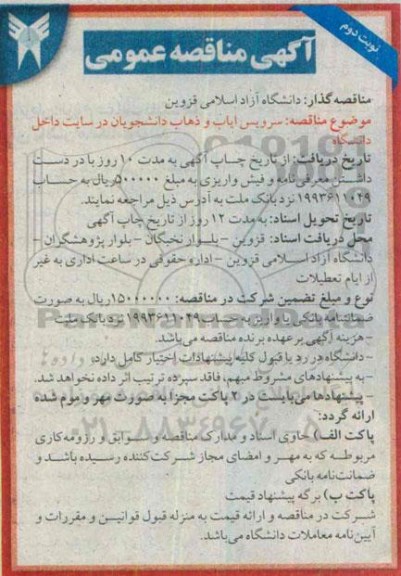 نوبت دوم
آگهی مناقصه عمومی
مناقصه گذار: دانشگاه آزاد اسلامی قزوین
موضوع مناقصه: سرویس ایاب و ذهاب دانشجویان در سایت داخل
دانشگاه
تاریخ دریافت: از تاریخ چاپ آگهی به مدت ۱۰ روز با در دست
داشتن معرفی نامه و فیش واریزی به مبلغ ۵۰۰۰۰۰ ریال به حساب
۱۹۹۳۶۱۱۰۴۹ نزد بانک ملت به آدرس ذیل مراجعه نمایند.
تاریخ تحویل اسناد: به مدت ۱۲ روز از تاریخ چاپ آگهی
محل دریافت اسناد: قزوین - بلوار نخبگان - بلوار پژوهشگران -
دانشگاه آزاد اسلامی قزوین - اداره حقوقی در ساعت اداری به غیر
از ایام تعطیلات
نوع و مبلغ تضمین شرکت در مناقصه: ۱۵۰۰۰۰۰۰ ریال به صورت
ضمانتنامه بانکی یا واریز به حساب ۱۹۹۳۶۱۱۰۴۹ نزد بانک ملت
- هزینه آگهی بر عهده برنده مناقصه می باشد.
- دانشگاه در رد یا قبول کلیه پیشنهادات اختیار کامل دارد.
- به پیشنهادهای مشروط مبهم، فاقد سپرده ترتیب اثر داده نخواهد شد.
- پیشنهادها می بایست در ۲ پاکت مجزا به صورت مهر و موم شده
ارائه گردد:
پاکت الف) حاوی اسناد و مدارک مناقصه و سوابق و رزومه کاری
مربوطه که به مهر و امضای مجاز شرکت کننده رسیده باشد و
ضمانت نامه بانکی
پاکت ب) برگه پیشنهاد قیمت
شرکت در مناقصه و ارائه قیمت به منزله قبول قوانین و مقررات و
آیین نامه معاملات دانشگاه می باشد.
۰۲۱-۸۸۳۴۹۶۷۰-۵